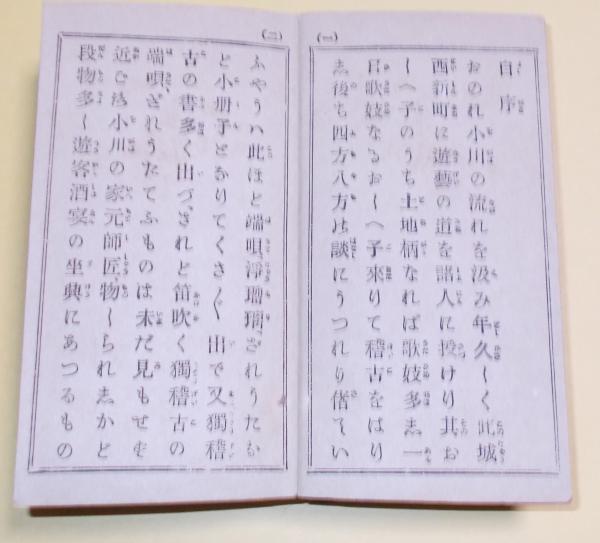 (一)
自序
おのれ小川の流れを汲み年久しく此城
西新町に遊藝の道を諸人に授けり其お
しへ子のうち土地柄なれば歌妓多し一
日歌妓なるおしへ子來りて稽古をはり
し後ち四方八方の談にうつれり偖てい
(二)
ふやうハ此ほと端唄淨瑠璃ざれうたな
と小册子となりてくさ〴〵出で又獨稽
古の書多く出づされと笛吹く獨稽古の
端唄ざれうたてふものは未だ見もせず
近ごろ小川の家元師匠物しられしかど
段物多し遊客酒宴の坐興にあつるもの